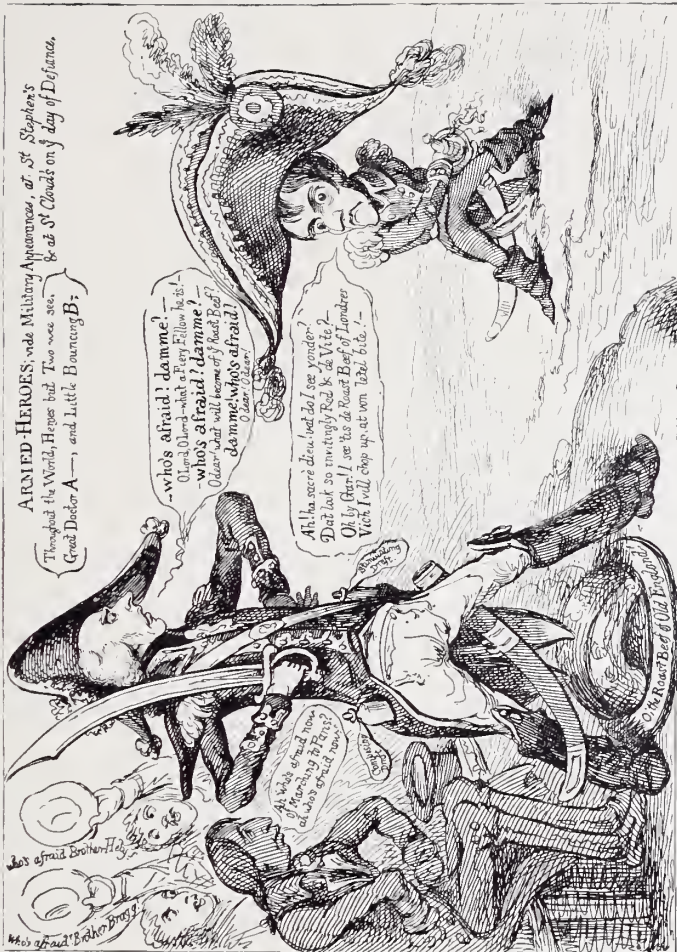 ARMED-HEROES; vide Military Appearances, at St Stephen's
& at St Cloud's on ye day of Defiance.
Throughout the World, Heroes but Two we see.
Great Doctor A—, and Little Bouncing B:
who's afraid Brother Hely
who's afraid Brother Bragg
-who's afraid? damme!-
O Lord, O Lord-what a Fiery Fellow he is!-
-who's afraid? damme?
O dear! what will become of ye Roast Beef?
damme! who's afraid?
O dear! O dear!
Ah! ha sacré dieu! vat do I see yonder?
Dat look so invitingly Red & de Vite?-
Oh by Gar! I see 'tis de Roast Beef of Londres
Vich I vill chop up, at von letel bite!-
Ah who's afraid now
of Marching to Paris?
ah who's afraid now?
O, the Roast Beef of Old England!